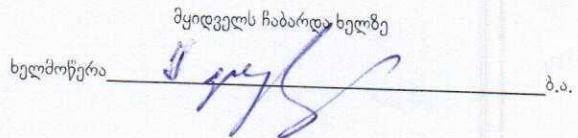 მყიდველს ჩაბარდა ხელზე
ხელმოწერა ბ.ა.